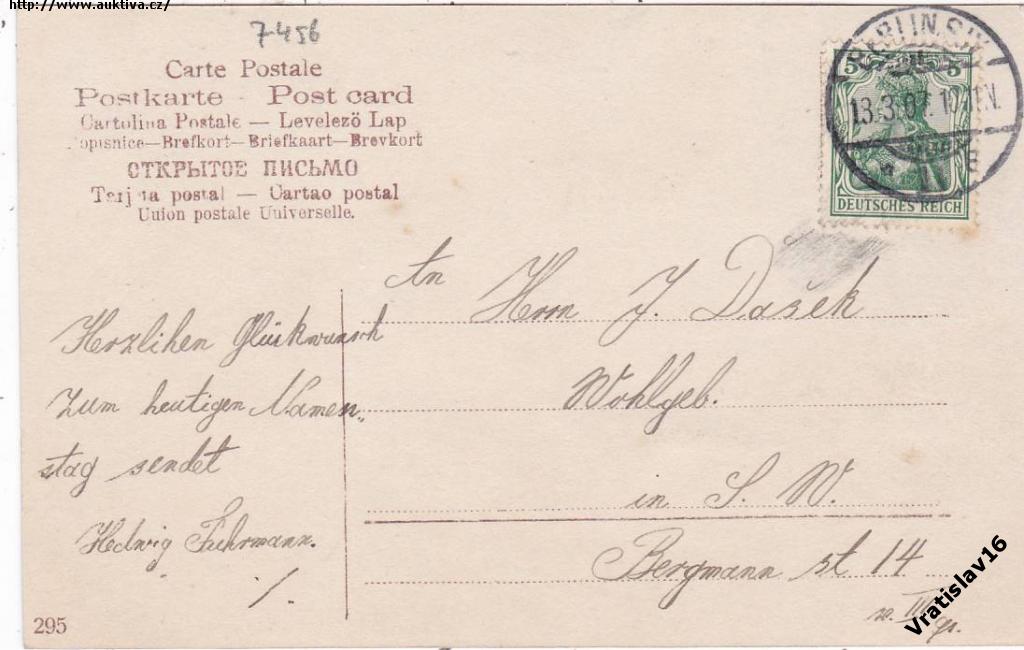 http://www.auktiva.cz/
7456
Carte Postale
Postkarte - Post card
Cartolina Postale — Levelezö Lap
Dopisnice—Brefkort—Briefkaart—Brevkort
ОТКРЫТОЕ ПИСЬМО
Tarjeta postal — Cartao postal
Union postale Universelle.
BERLIN S.W.
13.3.07.
5 5
DEUTSCHES REICH
An
Herrn J. Dašek
Wohlgeb.
in S. W.
Bergmann st 14
III
Herzlihen Glückwunsch
zum heutigen Namen„
stag sendet
Hedwig Fuhrmann.
295
Vratislav16